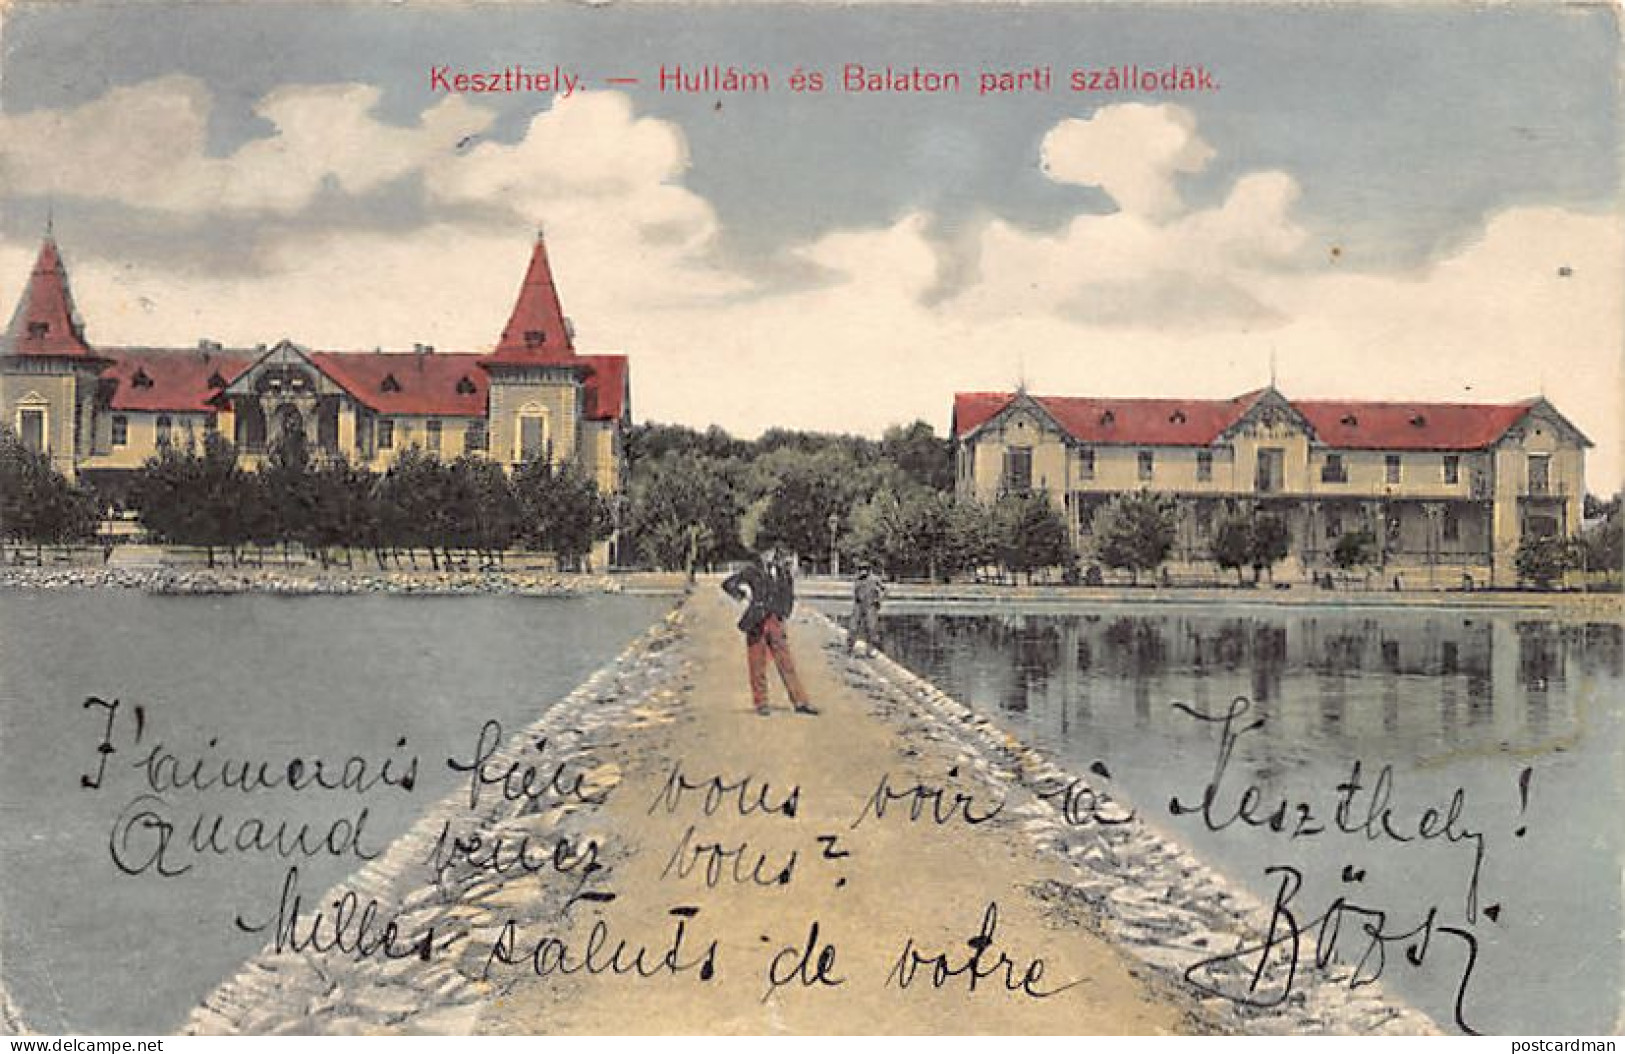 Keszthely. — Hullám és Balaton parti szállodák.
J'aimerais bien vous voir à Keszthely!
Quand venez vous?
Milles saluts de votre Bözsi
www.delcampe.net
postcardman